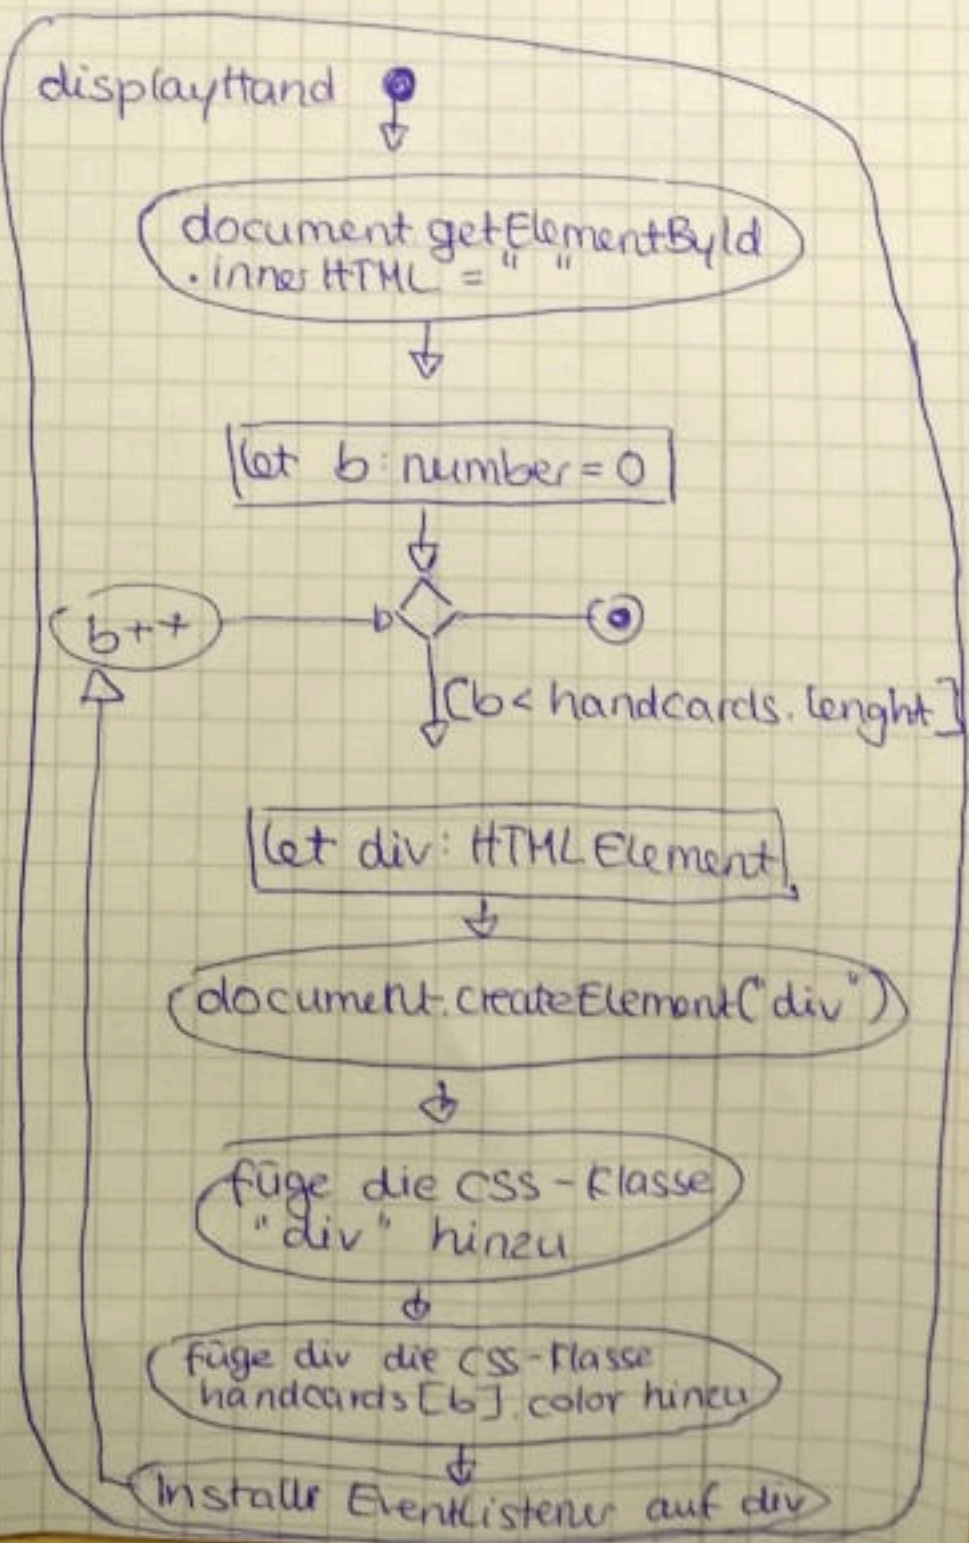 displayHand
document getElementById
.innerHTML = " "
let b: number = 0
b++
[b< handcards.lenght]
let div: HTMLElement
document.createElement("div")
füge die CSS-Klasse
"div" hinzu
füge div die CSS-Klasse
handcards[b].color hinzu
Installe EventListener auf div